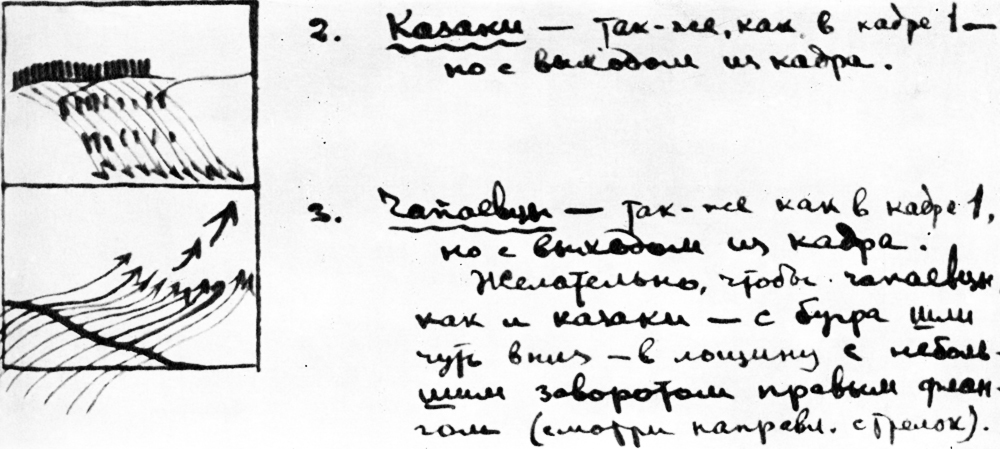 2. Казаки — так-же, как в кадре 1 —
но с выходом из кадра.
3. Чапаевцы — так-же как в кадре 1,
но с выходом из кадра.
Желательно, чтобы чапаевцы
как и казаки — с бугра шли
чуть вниз — в лощину с неболь-
шим заворотом правым флан-
гом (смотри направл. стрелок).